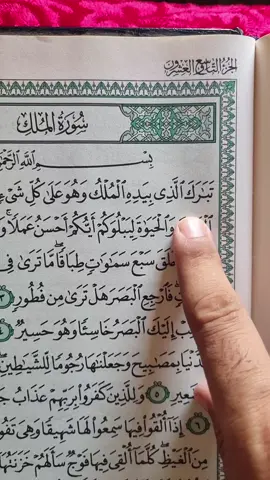 الجزء التاسع والعشرون
سُورَةُ المُلْكِ
بِسْمِ اللَّهِ الرَّحْمَٰنِ
تَبَٰرَكَ الَّذِى بِيَدِهِ الْمُلْكُ وَهُوَ عَلَىٰ كُلِّ شَىْءٍ
وَالْحَيَوٰةَ لِيَبْلُوَكُمْ أَيُّكُمْ أَحْسَنُ عَمَلًا ۚ
سَبْعَ سَمَٰوَٰتٍ طِبَاقًا ۖ مَّا تَرَىٰ فِى
فَارْجِعِ الْبَصَرَ هَلْ تَرَىٰ مِن فُطُورٍ ٣
إِلَيْكَ الْبَصَرُ خَاسِئًا وَهُوَ حَسِيرٌ ٤
بِمَصَٰبِيحَ وَجَعَلْنَٰهَا رُجُومًا لِّلشَّيَٰطِينِ ۖ
٥ وَلِلَّذِينَ كَفَرُوا۟ بِرَبِّهِمْ عَذَابُ
٦ إِذَآ أُلْقُوا۟ فِيهَا سَمِعُوا۟ لَهَا شَهِيقًا وَهِىَ
مِنَ الْغَيْظِ ۖ كُلَّمَآ أُلْقِىَ فِيهَا فَوْجٌ سَأَلَهُمْ خَزَنَتُهَآ